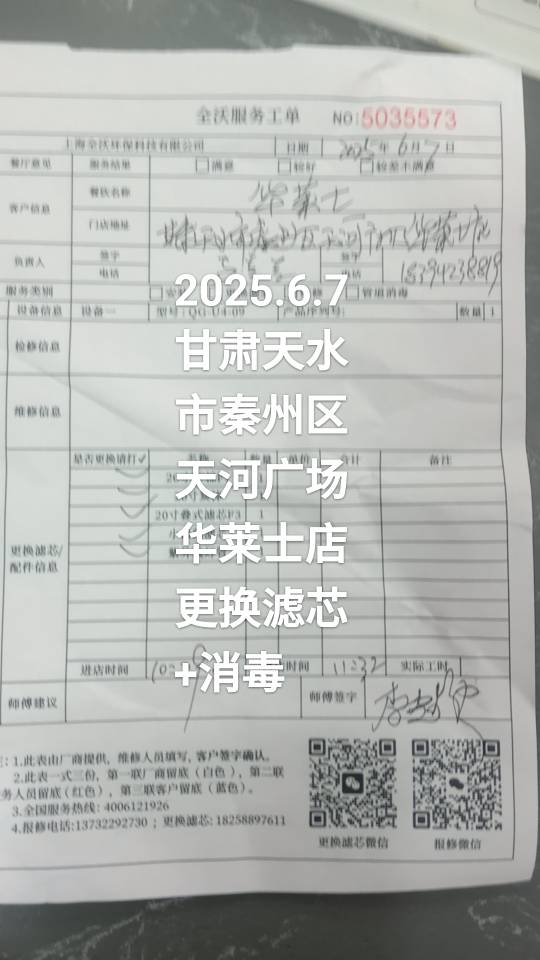 全沃服务工单 NO:5035573
上海全沃环保科技有限公司 日期 2025年6月7日
餐厅意见 服务结果 □满意 □较好 □较差不满意
客户信息 餐饮名称 华莱士
门店地址
负责人 签字 签字
电话 电话 18394238819
服务类别 管道消毒
设备信息 设备一 型号: QG-U4-09 产品序列号: 数量 1
检修信息
维修信息
是否更换请打✓ 名称 数量 单价 合计 备注
20寸叠式滤芯F3 1
更换滤芯/
配件信息
进店时间 时间 11:32 实际工时
师傅建议 师傅签字
1.此表由厂商提供，维修人员填写，客户签字确认。
2.此表一式三份，第一联厂商留底（白色），第二联
务人员留底（红色），第三联客户留底（蓝色）。
3.全国服务热线: 4006121926
4.报修电话:13732292730 ; 更换滤芯: 18258897611
更换滤芯微信 报修微信
2025.6.7
甘肃天水
市秦州区
天河广场
华莱士店
更换滤芯
+消毒